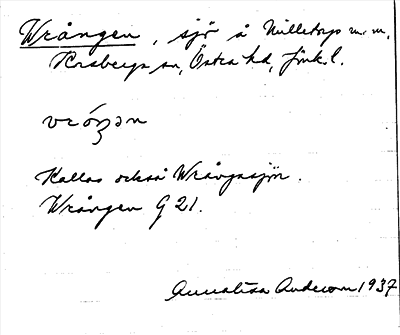 Wrången, sjö å Nilletorps m.m.,
Korsberga sn, Östra hd, Jönk. l.
vróŋən
Kallas också Wrångsjön.
Wrången G 21.
Annalisa Anderson 1937